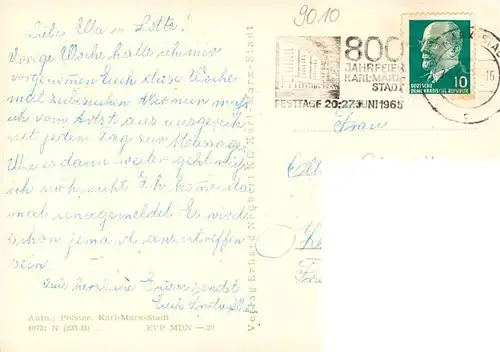 Liebe Ella u. Lotte!
Vorige Woche hatte ich mir
vorgenommen Euch diese Woche
mal zu besuchen Aber nun muß
ich vom Arzt aus ausgerech
net jeden Tag zur Massage
Wie es dann weiter geht weiß
ich noch nicht Ich komme da
mal unangemeldet Es wird
schon jemand anzutreffen
sein
Viele herzliche Grüße sendet
Euch
Aufn.: Polster, Karl-Marx-Stadt
EVP MDN —.20
9010
800
JAHRFEIER
KARL-MARX-
STADT
FESTTAGE 20.-27. JUNI 1965
10
DEUTSCHE
DEMOKRATISCHE REPUBLIK
Frau